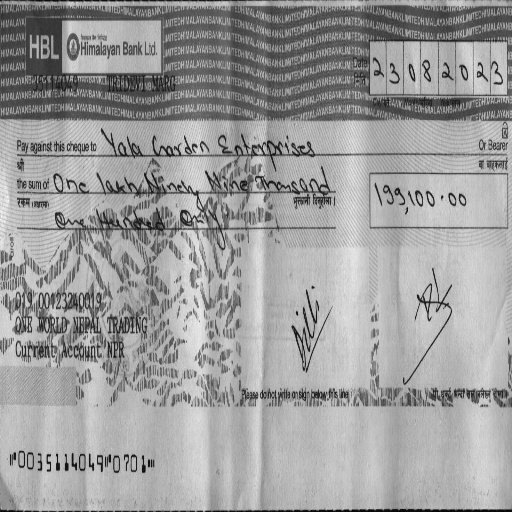 HBL Himalayan Bank Ltd.
35114049 TRIDEVI MARG
Date
23082023
Pay against this cheque to Yala Garden Enterprises Or Bearer
श्री
the sum of One lakh Ninety Nine Thousand
One Hundred Only
199,100.00
019 00123240019
ONE WORLD NEPAL TRADING
Current Account NPR
Dilli
Please do not write or sign below this line
⑈0035114049⑈0701⑈